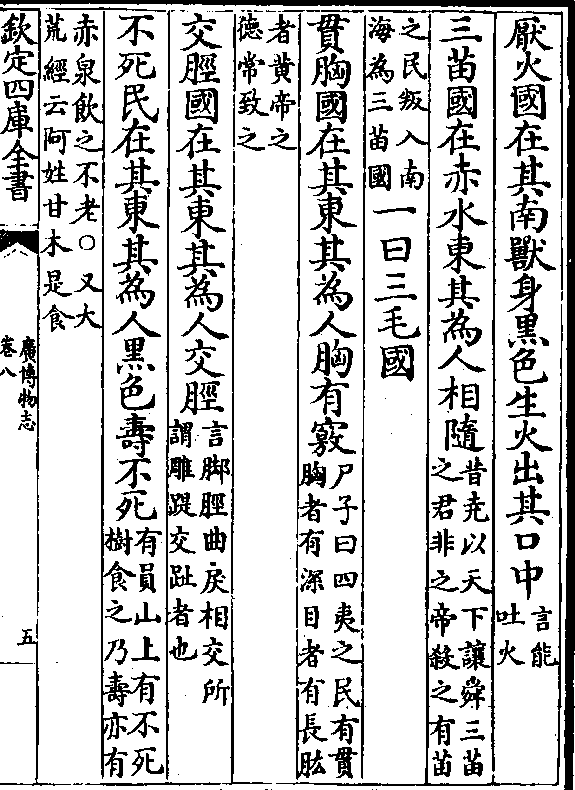 厭火國在其南獸身黑色生火出其口中言能
吐火
三苗國在赤水東其為人相隨昔堯以天下讓舜三苗
之君非之帝殺之有苗
之民叛入南
海為三苗國
一曰三毛國
貫胸國在其東其為人胸有竅尸子曰四夷之民有貫
胸者有深目者有長肱
者黄帝之
德常致之
交脛國在其東其為人交脛言脚脛曲戾相交所
謂雕蹏交趾者也
不死民在其東其為人黑色壽不死有員山上有不死
樹食之乃壽亦有
赤泉飲之不老○又大
荒經云阿姓甘木是食
欽定四庫全書
廣博物志
卷八
五